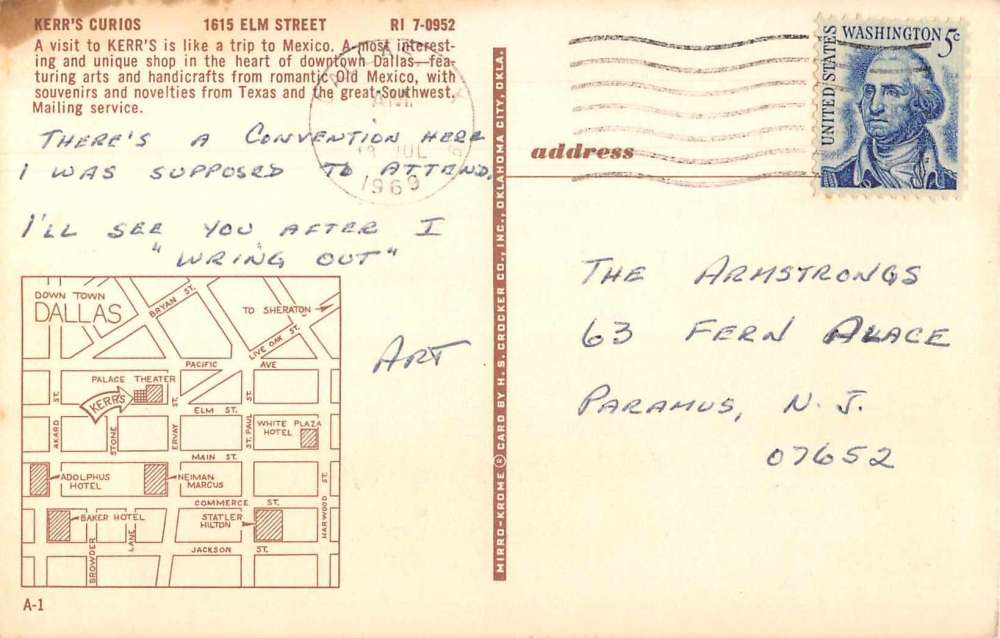 KERR'S CURIOS 1615 ELM STREET RI 7-0952
A visit to KERR'S is like a trip to Mexico. A most interest-
ing and unique shop in the heart of downtown Dallas—fea-
turing arts and handicrafts from romantic Old Mexico, with
souvenirs and novelties from Texas and the great Southwest.
Mailing service.
THERE'S A CONVENTION HERE
I WAS SUPPOSED TO ATTEND.
I'LL SEE YOU AFTER I
"WRING OUT"
ART
AM
18 JUL
1969
DOWN TOWN
DALLAS
BRYAN ST.
TO SHERATON
LIVE OAK ST.
PACIFIC AVE
PALACE THEATER
KERR'S
ELM ST.
AKARD ST.
STONE
ERVAY ST.
ST. PAUL ST.
WHITE PLAZA
HOTEL
MAIN ST.
ADOLPHUS
HOTEL
NEIMAN
MARCUS
COMMERCE ST.
HARWOOD ST.
BAKER HOTEL
STATLER
HILTON
BROWDER
LANE
JACKSON ST.
A-1
MIRRO-KROME ® CARD BY H. S. CROCKER CO., INC., OKLAHOMA CITY, OKLA.
address
UNITED STATES
WASHINGTON 5¢
THE ARMSTRONGS
63 FERN PLACE
PARAMUS, N. J.
07652